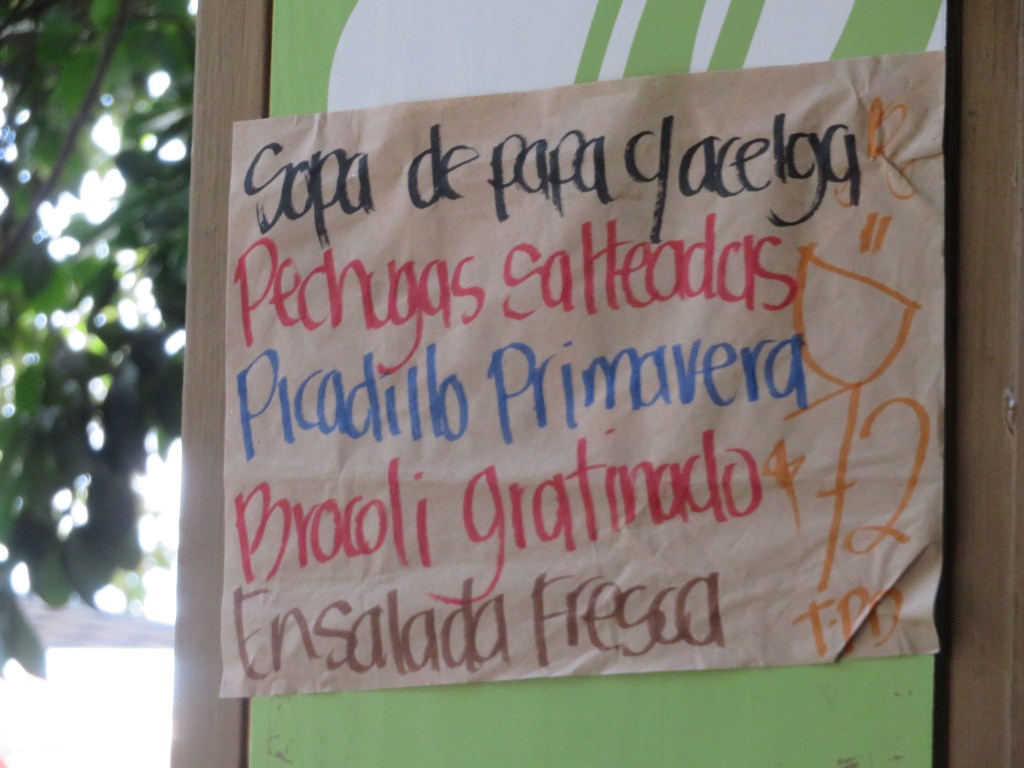 Sopa de papa y acelga
Pechugas salteadas
Picadillo Primavera
Brocoli gratinado
$72
Ensalada Fresca